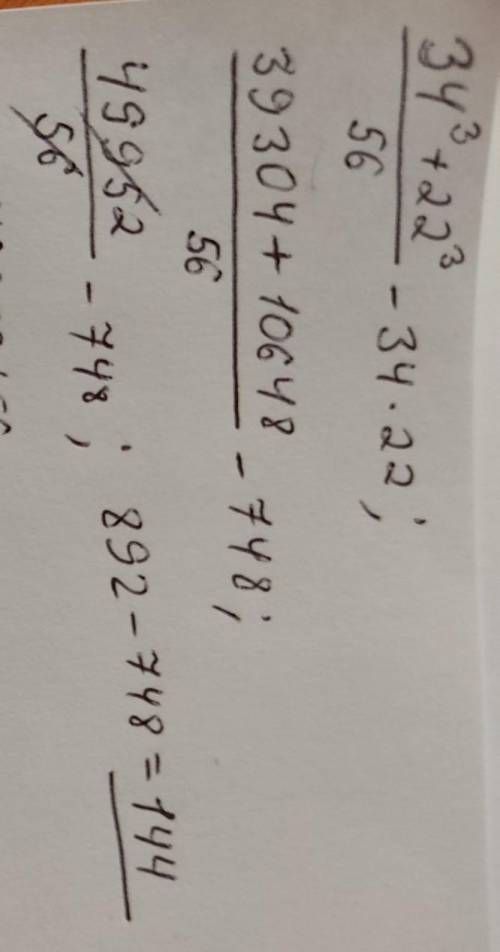 34³ + 22³
56
- 34 · 22 ;
39304 + 10648
56
- 748 ;
49952
56
- 748 ; 892 - 748 = 144